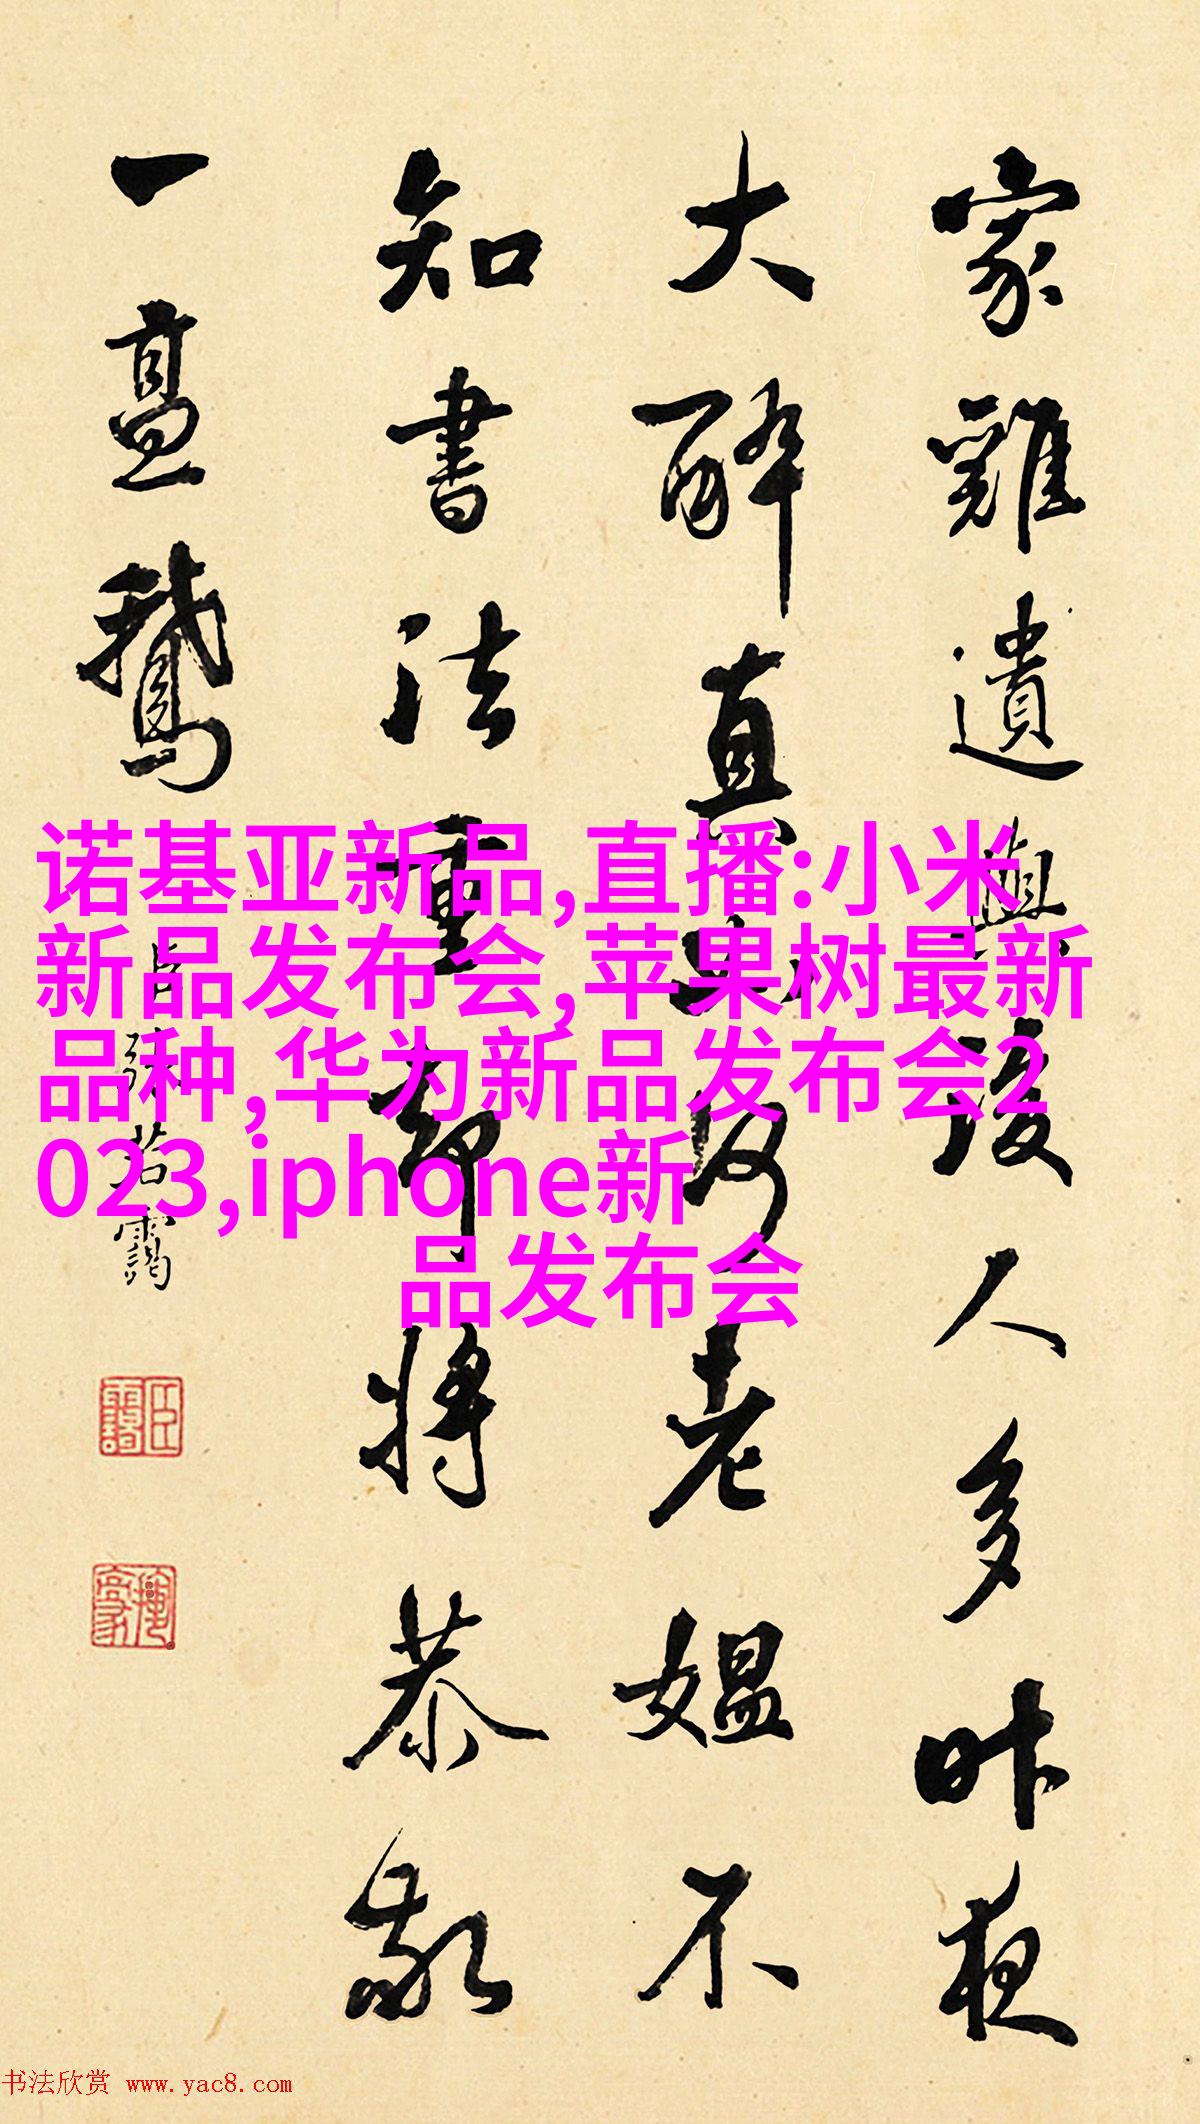 家雞遺與後人多昨夜
大醉真老媼不
知書法重却將恭敬
一鵝
臣張若靄
诺基亚新品,直播:小米
新品发布会,苹果树最新
品种,华为新品发布会2
023,iphone新
品发布会
书法欣赏 www.yac8.com